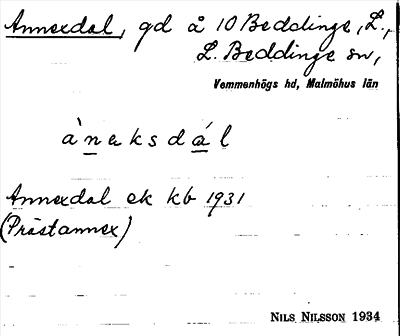 Annexdal, gd å 10 Beddinge, L.,
L. Beddinge sn,
Vemmenhögs hd, Malmöhus län
ànaksdál
Annexdal ek kb 1931
(Prästannex)
NILS NILSSON 1934